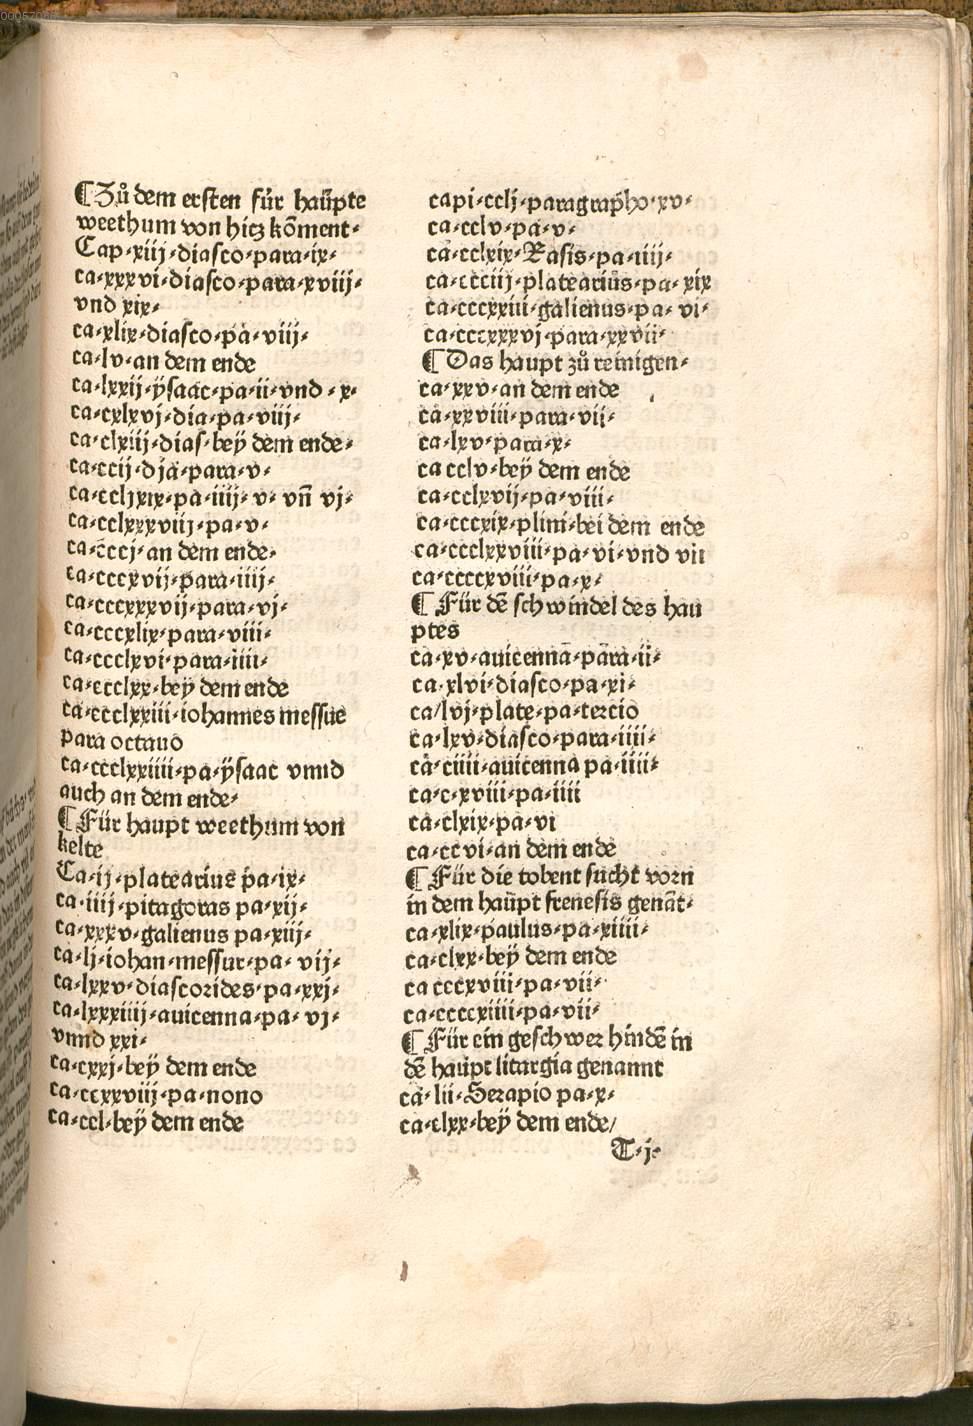 ¶Zů dem ersten für haüpte
weethum von hicz kōment·
Cap·xiij·diasco·para·ix·
ca·xxxvi·diasco·para·xviij·
vnd xix·
ca·xlix·diasco·pa·viij·
ca·lv·an dem ende
ca·lxxij·ÿsaac·pa·ii·vnd·x·
ca·cxlxvj·dia·pa·viij·
ca·clxiij·dias·beÿ dem ende·
ca·ccij·dja·para·v·
ca·ccljxix·pa·iiij·v·vñ vj·
ca·cclxxxviij·pa·v·
ca·cccj·an dem ende·
ca·cccxvij·para·iiij·
ca·cccxxxvij·para·vj·
ca·cccxlix·para·viii·
ca·ccclxvi·para·iiii·
ca·ccclxx·beÿ dem ende
ca·ccclxxiii·iohannes messue
para octauo
ca·ccclxxiiii·pa·ÿsaac vnnd
auch an dem ende·
¶Für haupt weethum von
kelte
Ca·ij·platearius pa·ix·
ca·iiij·pitagoras pa·xij·
ca·xxxv·galienus pa·xiij·
ca·lj·iohan·messur·pa·vij·
ca·lxxv·diascorides·pa·xxj·
ca·lxxxiiij·auicenna·pa·vj·
vnnd xxi·
ca·cxxj·beÿ dem ende
ca·ccxxviij·pa·nono
ca·ccl·beÿ dem ende
capi·cclj·paragrapho·xv·
ca·cclv·pa·v·
ca·cclxix·Rasis·pa·iiij·
ca·ccciij·platearius·pa·xix
ca·cccxxiii·galienus·pa·vi·
ca·cccxxxvj·para·xxvii·
¶Das haupt zů reinigen·
ca·xxv·an dem ende
ca·xxviii·para·vij·
ca·lxv·para·x·
ca cclv·beÿ dem ende
ca·cclxvij·pa·viii·
ca·cccxix·plini·bei dem ende
ca·ccclxxviii·pa·vi·vnd vii
ca·ccccxviii·pa·x·
¶Für dē schwindel des hau
ptes
ca·xv·auicenna·para·ii·
ca·xlvi·diasco·pa·xi·
ca/lvj·plate·pa·tercio
ca·lxv·diasco·para·iiii·
ca·ciiii·auicenna pa·iiii·
ca·c·xviii·pa·iiii
ca·clxix·pa·vi
ca·cc vi·an dem ende
¶Für die tobent sucht vorn
in dem haüpt frenesis genāt·
ca·xlix·paulus·pa·xiiii·
ca·clxx·beÿ dem ende
ca cccxviii·pa·vii·
ca·ccccxiiii·pa·vii·
¶Für ein geschwer hindē in
dē haüpt liturgia genannt
ca·lii·Serapio pa·x·
ca·clxx·beÿ dem ende/
T·j·